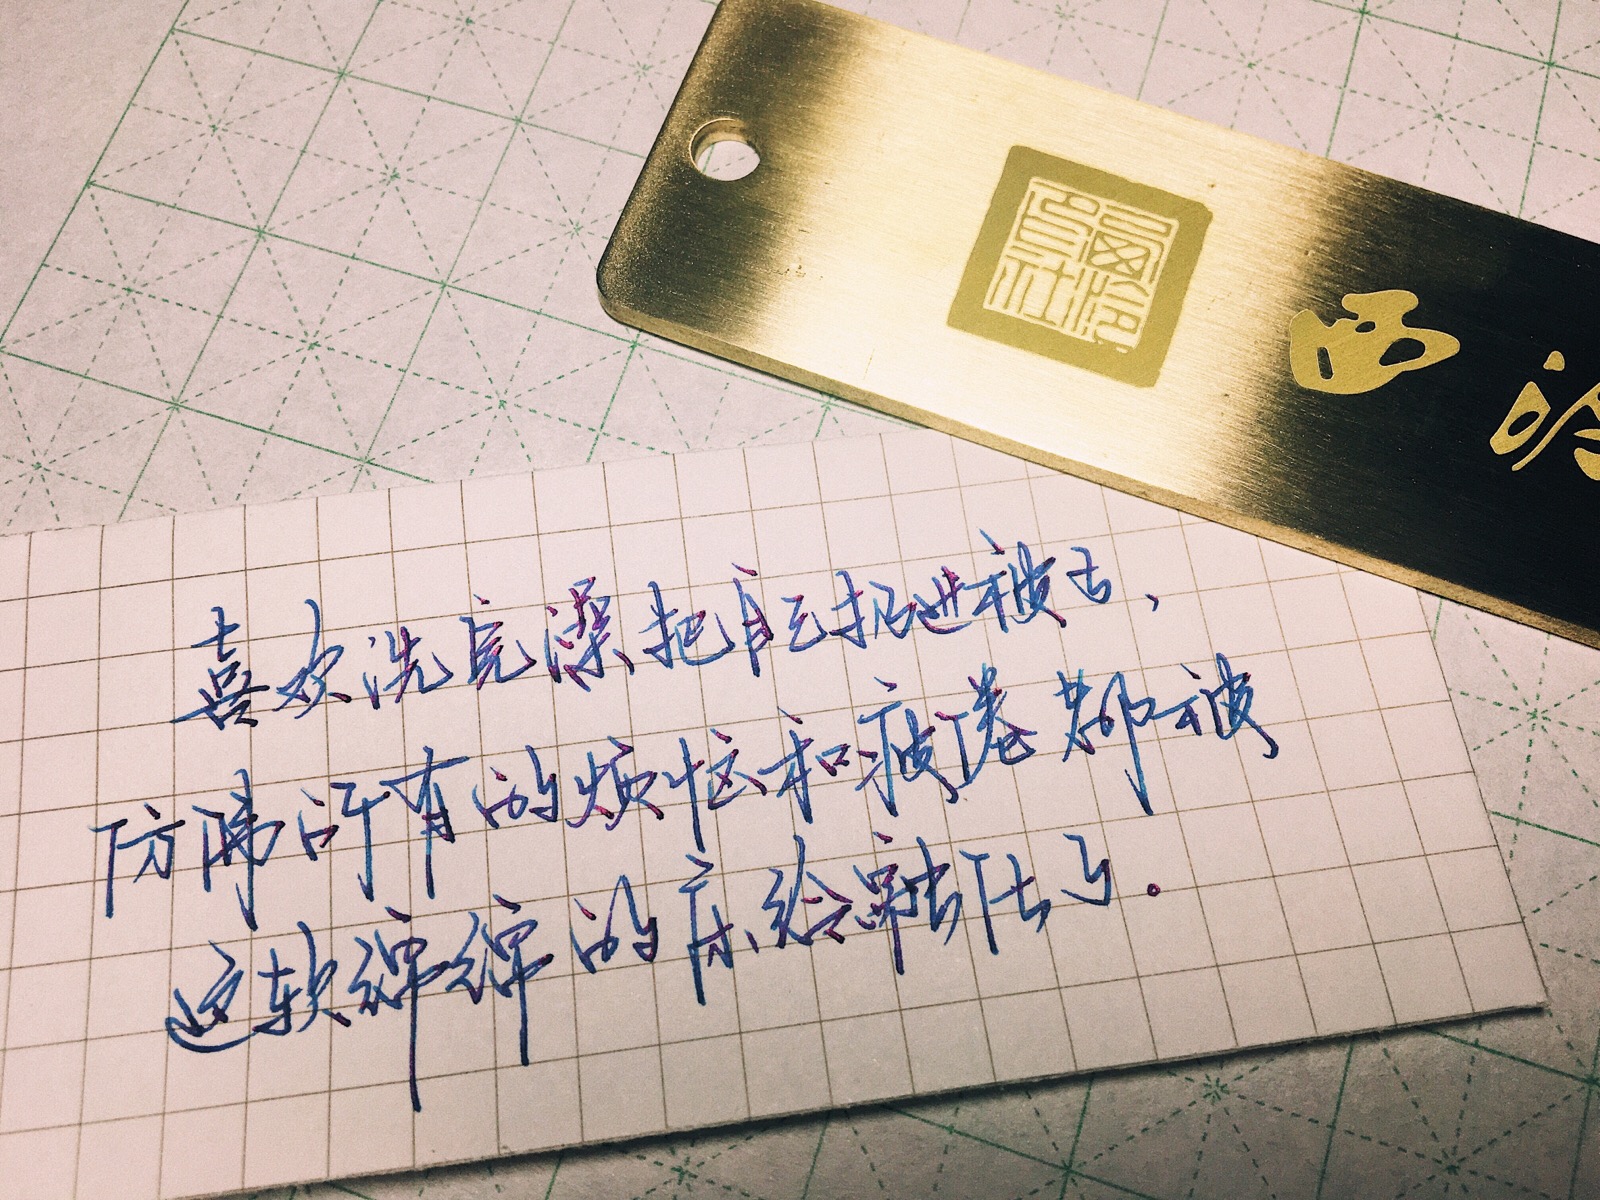 西泠
喜欢洗完澡把自己扔进被占,
仿佛所有的烦恼和疲倦都被
这软绵绵的床给融压了。